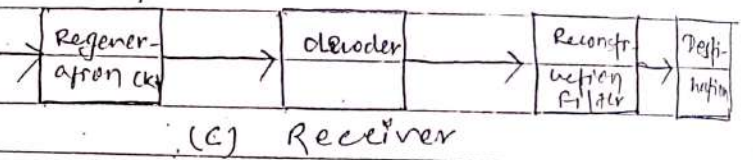 Regener-
ation ckt
decoder
Reconstr-
uction
Filter
Desti-
nation
(C) Receiver